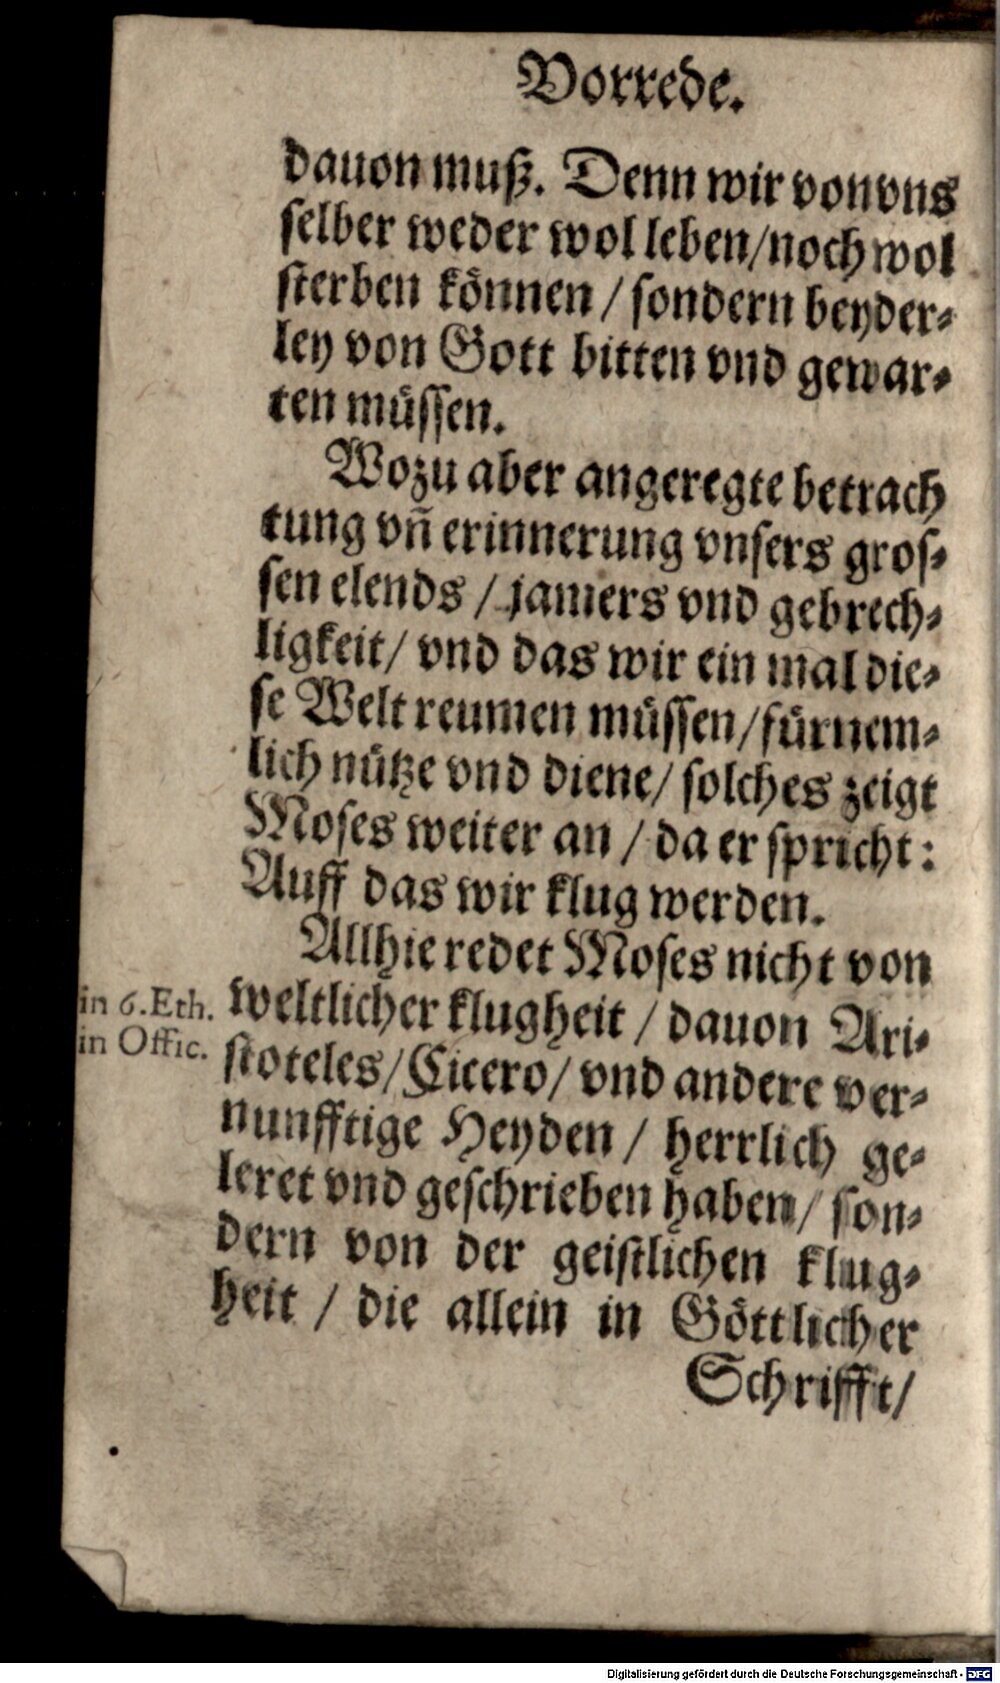 Vorrede.
dauon muß. Denn wir von vns
selber weder wol leben/noch wol
sterben können / sondern beyder⸗
ley von Gott bitten vnd gewar⸗
ten müssen.
Wozu aber angeregte betrach
tung vñ erinnerung vnsers gros⸗
sen elends / jamers vnd gebrech⸗
ligkeit/ vnd das wir ein mal die⸗
se Welt reumen müssen/fürnem⸗
lich nütze vnd diene/ solches zeigt
Moses weiter an / da er spricht:
Auff das wir klug werden.
Allhie redet Moses nicht von
in 6.Eth. weltlicher klugheit / dauon Ari⸗
in Offic. stoteles/Cicero/ vnd andere ver⸗
nunfftige Heyden / herrlich ge⸗
leret vnd geschrieben haben/ son⸗
dern von der geistlichen klug⸗
heit / die allein in Göttlicher
Schrifft/
Digitalisierung gefördert durch die Deutsche Forschungsgemeinschaft - DFG